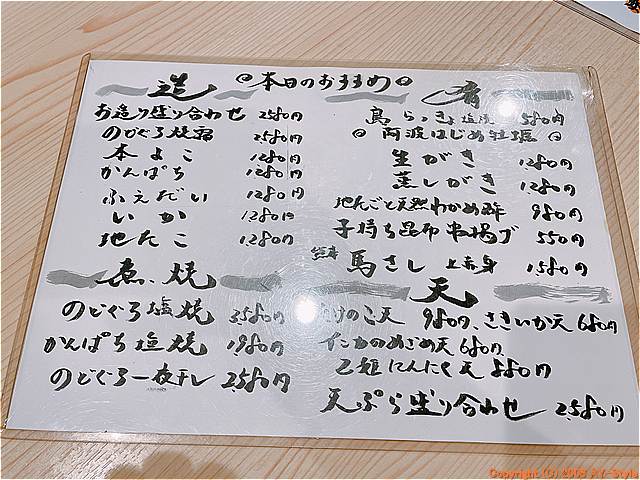 本日のおすすめ
造
お造り盛り合わせ 2580円
のどぐろ焼霜 2580円
本よこ 1280円
かんぱち 1280円
ふえだい 1280円
いか 1280円
地たこ 1280円
煮・焼
のどぐろ塩焼 3580円
かんぱち塩焼 1980円
のどぐろ一夜干し 2580円
肴
島らっきょ塩漬 580円
阿波はじめ牡蠣
生がき 1280円
蒸しがき 1280円
地たこと天然わかめ酢 980円
子持ち昆布串揚げ 550円
熊本 馬さし 上赤身 1580円
天
たけのこ天 980円、さきいか天 680円
イカのめざめ天 680円
乙姫にんにく天 880円
天ぷら盛り合わせ 2580円